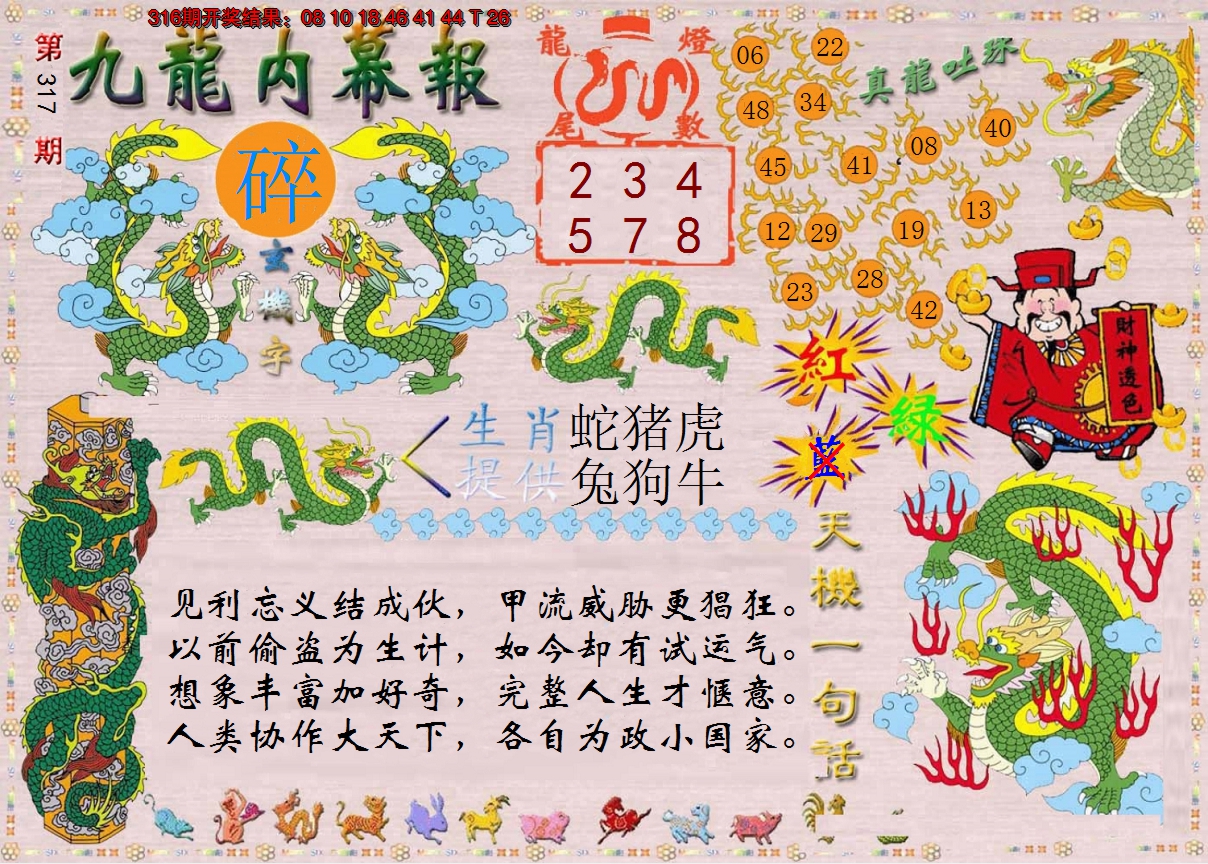 316期开奖结果：08 10 18 46 41 44 T 26
第317期
九龍内幕報
碎
玄機字
龍燈
尾數
2 3 4
5 7 8
真龍吐珠
06 22
48 34
45 41 08 40
12 29 19 13
23 28 42
財神透色
紅
綠
藍
生肖 蛇猪虎
提供 兔狗牛
天機一句话
见利忘义结成伙，甲流威胁更猖狂。
以前偷盗为生计，如今却有试运气。
想象丰富加好奇，完整人生才惬意。
人类协作大天下，各自为政小国家。